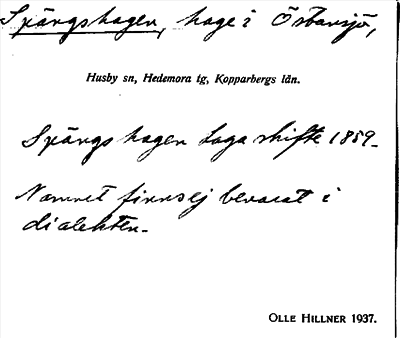 Spångshagen, hage i Östansjö,
Husby sn, Hedemora tg, Kopparbergs län.
Spångshagen Laga skifte 1859.
Namnet finns ej bevarat i
dialekten.
OLLE HILLNER 1937.